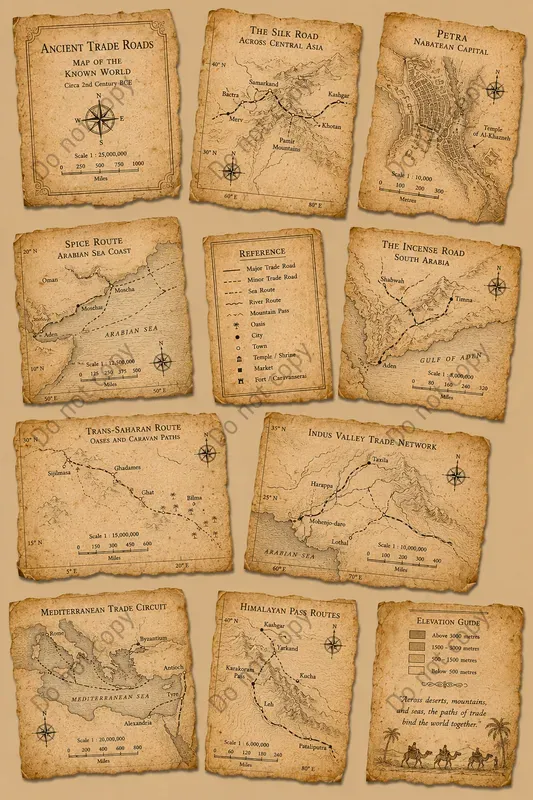 ANCIENT TRADE ROADS
MAP OF THE
KNOWN WORLD
Circa 2nd Century BCE
N
W
E
S
Scale 1 : 25,000,000
0 250 500 750 1000
Miles
Do not copy
THE SILK ROAD
ACROSS CENTRAL ASIA
40° N
Samarkand
Bactra
Kashgar
Merv
Khotan
Pamir
Mountains
30° N
N
60° E
80° E
Do not copy
PETRA
NABATEAN CAPITAL
N
Temple
of Al-Khazneh
Scale 1 : 10,000
0 100 200 300
Metres
SPICE ROUTE
ARABIAN SEA COAST
20° N
Oman
Moscha
Moschas
Aden
ARABIAN SEA
10° N
Scale 1 : 12,500,000
0 125 250 375 500
Miles
N
50° E
50° E
Do not copy
REFERENCE
Major Trade Road
Minor Trade Road
Sea Route
River Route
Mountain Pass
Oasis
City
Town
Temple / Shrine
Market
Fort / Caravanserai
Do not copy
THE INCENSE ROAD
SOUTH ARABIA
N
Shabwah
Timna
GULF OF ADEN
Aden
Scale 1 : 8,000,000
0 80 160 240 320
Miles
Do not copy
TRANS-SAHARAN ROUTE
OASES AND CARAVAN PATHS
30° N
N
Sijilmasa
Ghadames
Ghat
Bilma
15° N
Scale 1 : 15,000,000
0 150 300 450 600
Miles
5° E
20° E
Do not copy
INDUS VALLEY TRADE NETWORK
35° N
N
Taxila
Harappa
25° N
Mohenjo-daro
Lothal
ARABIAN SEA
Scale 1 : 10,000,000
0 100 200 300 400
Miles
70° E
Do not copy
MEDITERRANEAN TRADE CIRCUIT
Rome
Byzantium
Antioch
MEDITERRANEAN SEA
Tyre
Alexandria
N
Scale 1 : 20,000,000
0 200 400 600 800
Miles
Do not copy
HIMALAYAN PASS ROUTES
40° N
Kashgar
N
Yarkand
Karakoram
Pass
Kucha
Leh
Pataliputra
Scale 1 : 6,000,000
0 60 120 180 240
Miles
80° E
Do not copy
ELEVATION GUIDE
Above 3000 metres
1500 - 3000 metres
500 - 1500 metres
Below 500 metres
Across deserts, mountains,
and seas, the paths of trade
bind the world together.
Do not copy